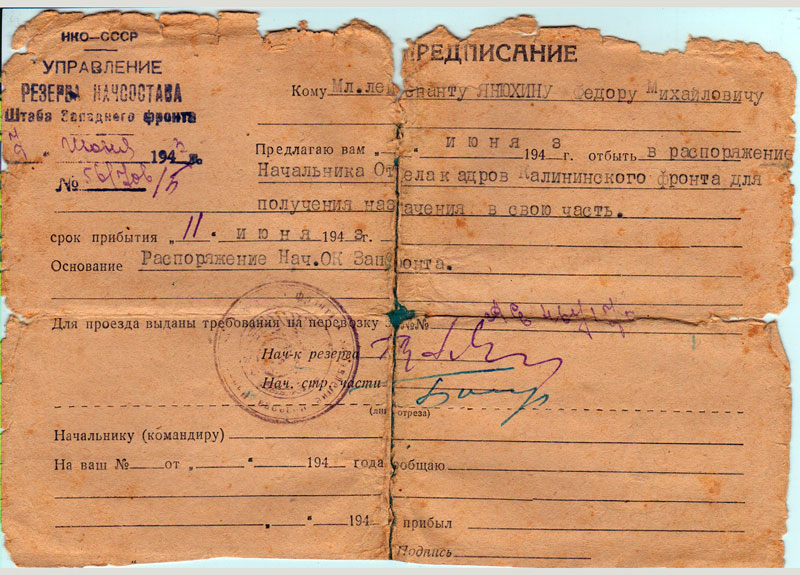 НКО—СССР
УПРАВЛЕНИЕ
РЕЗЕРВА НАЧСОСТАВА
Штаба Западного фронта
" июня 1943 г.
№ /Б
РЕДПИСАНИЕ
Кому Мл.лейтенанту ЯНЮХИНУ Федору Михайловичу
Предлагаю вам „ " июня 1943 г. отбыть в распоряжение
Начальника Отдела кадров Калининского фронта для
получения назначения в свою часть.
срок прибытия „11" июня 1943г.
Основание Распоряжение Нач.ОК Запфронта.
Для проезда выданы требования на перевозку №№
Нач-к резерва
Нач. стр. части
(линия отреза)
Начальнику (командиру)
На ваш № от „ " 194 года сообщаю
„ " 194 прибыл
Подпись